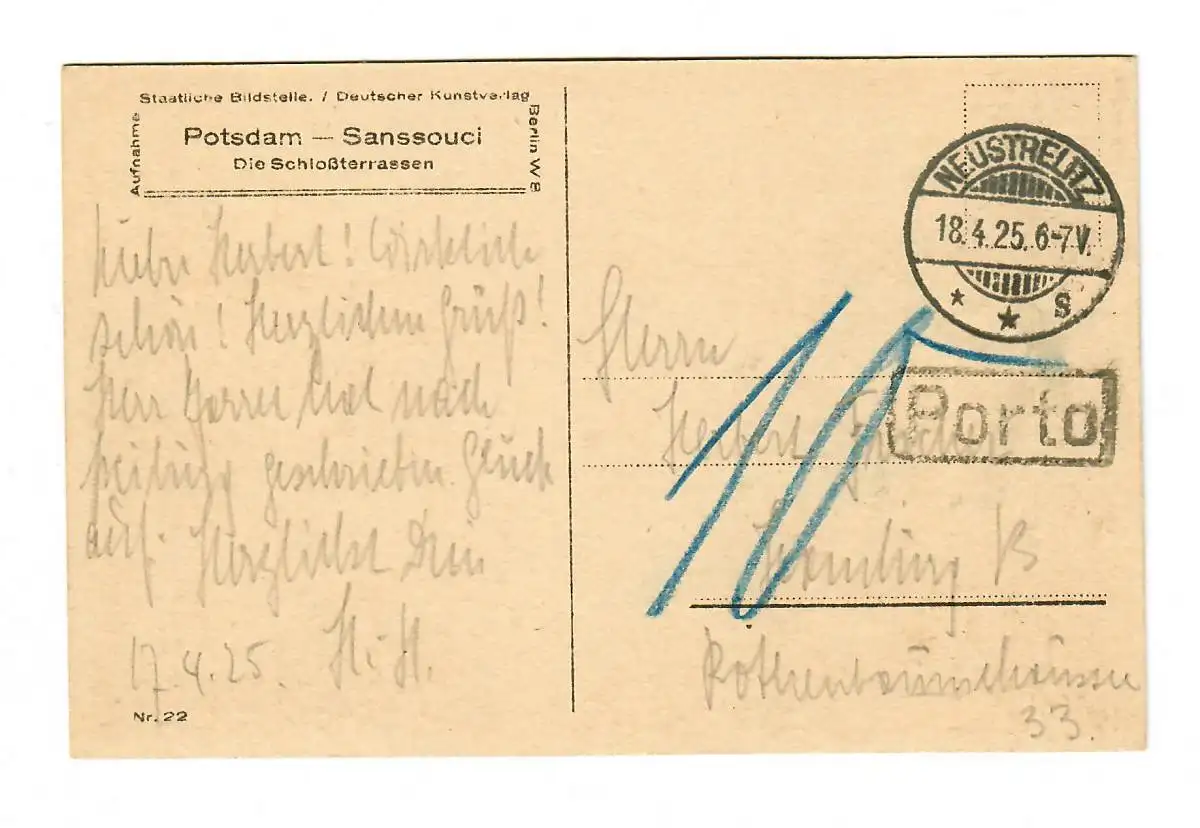 Staatliche Bildstelle. / Deutscher Kunstverlag
Aufnahme
Berlin W 8
Potsdam — Sanssouci
Die Schloßterrassen
Lieber Herbert! Wirklich
schön! Herzlichen Gruß!
Herr hat nach
geschrieben. Glück
auf. Herzlichst Dein
H. H.
17.4.25.
Nr. 22
NEUSTRELITZ
18.4.25.6-7V.
* * s
Porto
10
Herrn
Herbert
Hamburg 13
Rothenbaumchaussee
33.